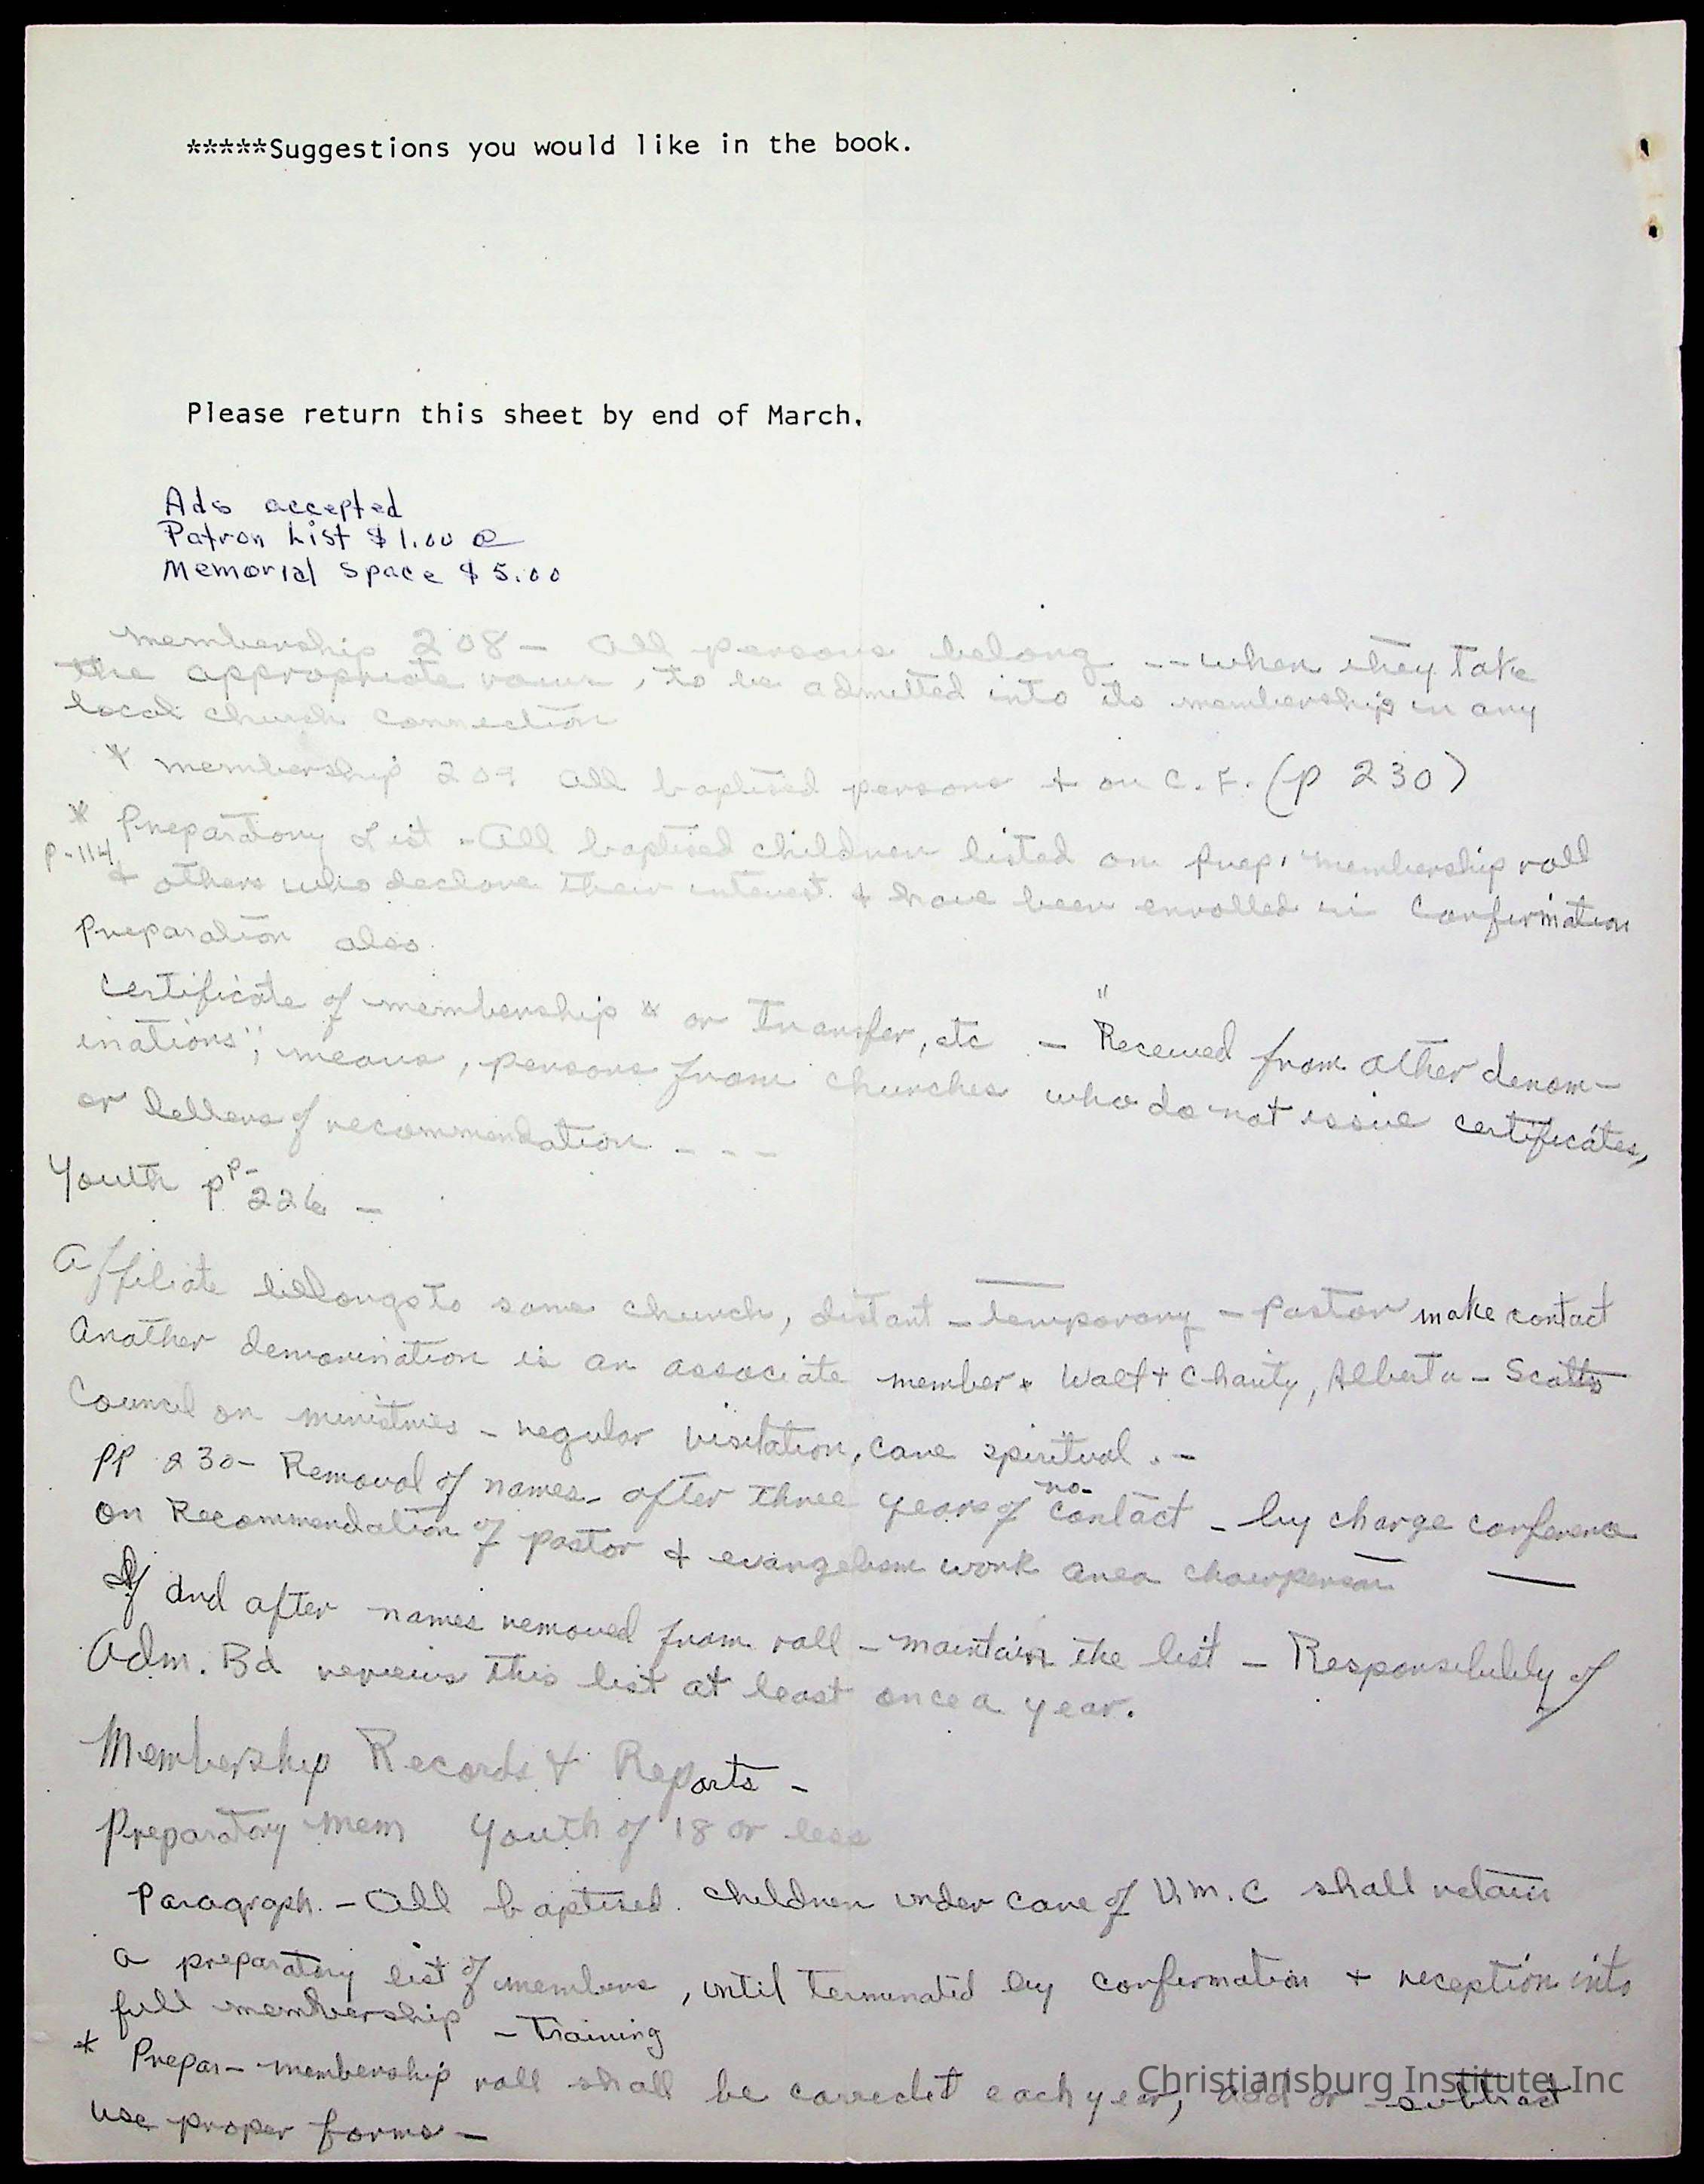 *****Suggestions you would like in the book.
Please return this sheet by end of March.
Ads accepted
Patron List $1.00 @
Memorial Space $5.00
membership 208 - All persons belong -- when they take
the appropriate vows, to be admitted into its membership in any
local church connection
* membership 209 All baptised persons + on C. F. (p 230)
* Preparatory List - All baptised children listed on prep. membership roll
P-114 & others who declare their interest & have been enrolled in Confirmation
Preparation also.
Certificate of membership * or Transfer, etc - "Received from other denom-
inations"; means, persons from churches who do not issue certificates,
or letters of recommendation - - -
Youth pp- 226 -
Affiliate belongs to some church, distant - temporary - Pastor make contact
Another denomination is an associate member + Walt + Charity, Alberta - Scotts
Council on ministries - regular visitation, care spiritual. -
pp 230 - Removal of names - after three years of no contact - by charge conference
on Recommendation of pastor & evangelism work area chairperson
If and after names removed from roll - maintain the list - Responsibility of
Adm. Bd reviews this list at least once a year.
Membership Records & Reports -
Preparatory Mem Youth of 18 or less
Paragraph. - All baptised. children under care of U.M.C shall retain
a preparatory list of members, until terminated by confirmation + reception into
full membership - Training
* Prepar - membership roll shall be correctet each year, add or subtract
use proper forms -
Christiansburg Institute, Inc